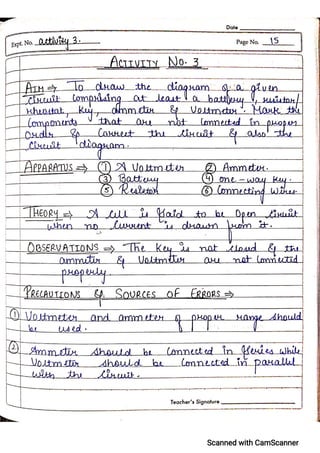 Date
Expt. No. activity 3.
Page No. 15
ACTIVITY NO. 3
AIM ⇒ To draw the diagram of a given
circuit comprising at least a battery, resistor/
rheostat, key, ammeter & Voltmeter. Mark the
Components that are not Connected in proper
Order & Correct the Circuit & also the
Circuit diagram.
APPARATUS ⇒ ① A Voltmeter ② Ammeter.
③ Battery ④ one-way key.
⑤ Resistor ⑥ Connecting Wires
THEORY ⇒ A Cell is Said to be Open Circuit
when no Current is drawn from it.
OBSERVATIONS ⇒ The Key is not closed & the
ammeter & Voltmeter are not Connected
properly.
PRECAUTIONS & SOURCES OF ERRORS ⇒
① Voltmeter and ammeter of proper range should
be used.
② Ammeter should be Connected in Series while
Voltmeter should be Connected in parallel
with the Circuit.
Teacher's Signature
Scanned with CamScanner